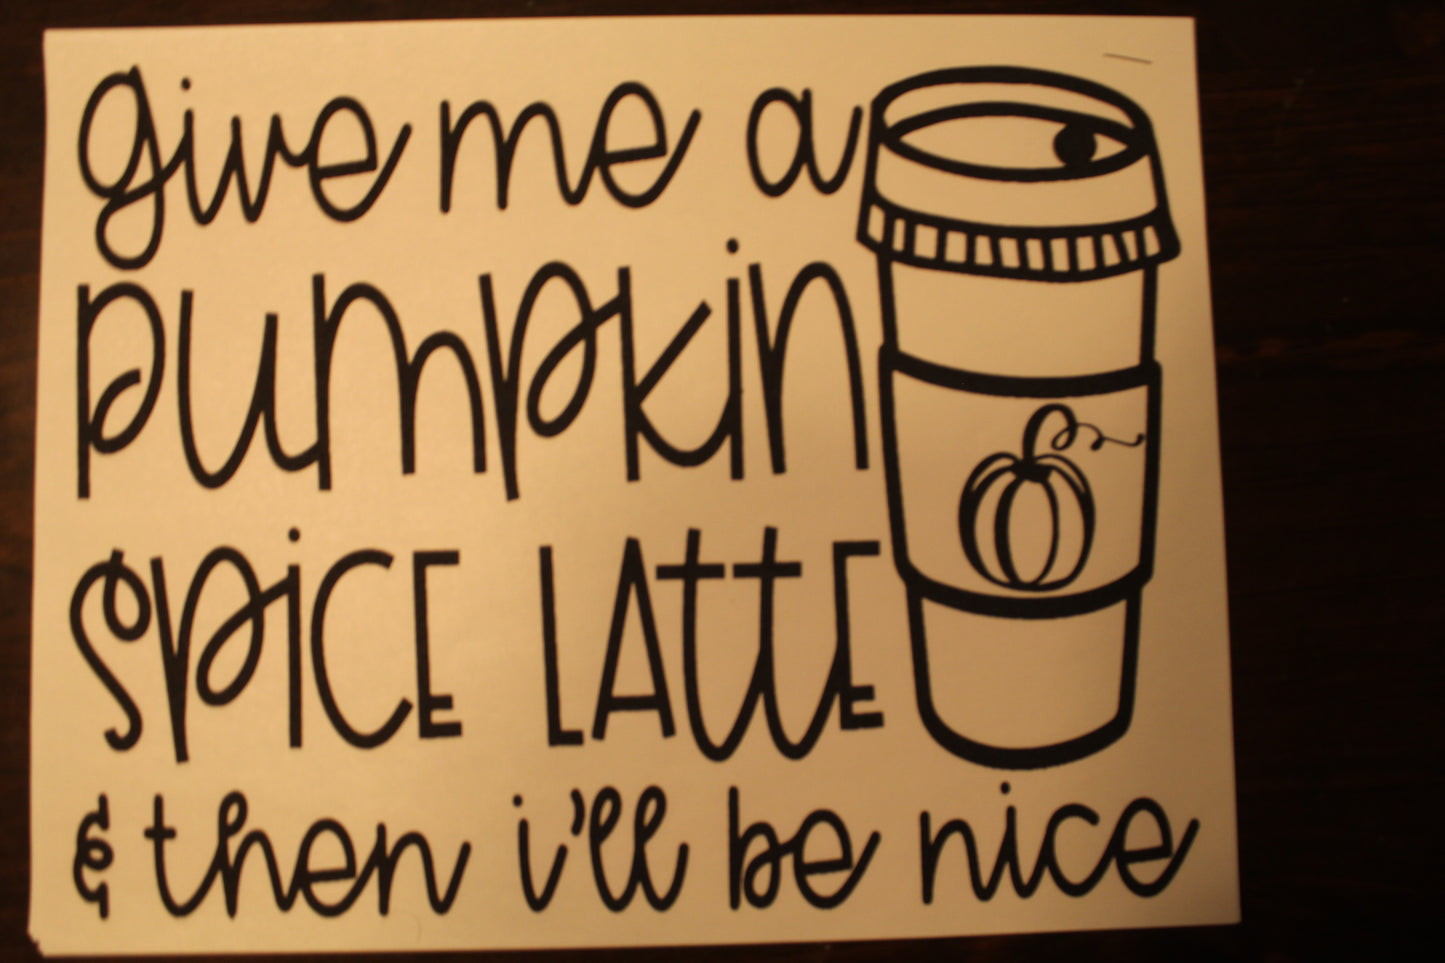 give me a
pumpkin
SPiCE LAttE
& then i'll be nice